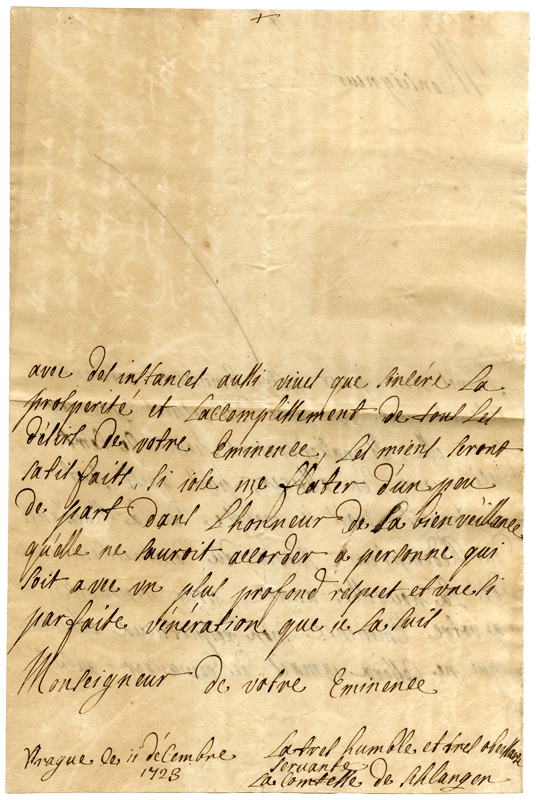 avec des instances aussi vives que sincére La
prosperité et Laccomplissement de tous Les
désirs de vôtre Eminence, Les miens seront
satisfaits, si iose me flater d'un peu
de part dans L'honneur de La bienvéillance
quelle ne sauroit accorder a personne qui
soit avec vn plus profond respect et vne si
parfaite vénération que ie La suis
Monseigneur de vôtre Eminence
Prague de 11 décembre
1723
La tres humble et tres obeissante
servante
La Comtesse de Schlangen